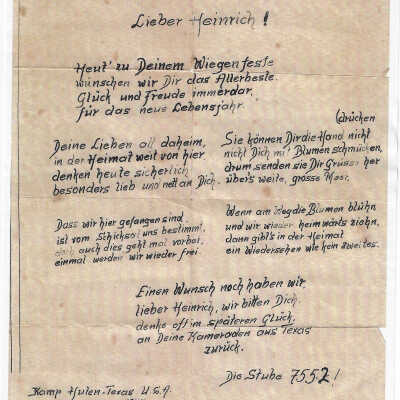 Lieber Heinrich!
Heut' zu Deinem Wiegenfeste
wünschen wir Dir das Allerbeste.
Glück und Freude immerdar
für das neue Lebensjahr.
Deine Lieben all daheim,
in der Heimat weit von hier,
denken heute sicherlich
besonders lieb und nett an Dich.
(drücken
Sie können Dir die Hand nicht
nicht Dich mit Blumen schmücken,
drum senden sie Dir Grüsse her
über's weite, grosse Meer.
Dass wir hier gefangen sind
ist vom Schicksal uns bestimmt,
auch dies geht mal vorbei,
einmal werden wir wieder frei.
Wenn am Weg die Blumen blühn
und wir wieder heimwärts ziehn,
dann gibt's in der Heimat
ein Wiedersehen wie kein zweites.
Einen Wunsch noch haben wir,
lieber Heinrich, wir bitten Dich.
denke oft im späteren Glück,
an Deine Kameraden aus Texas
zurück.
Die Stube 7552!
Kamp Hulen-Texas U.S.A.